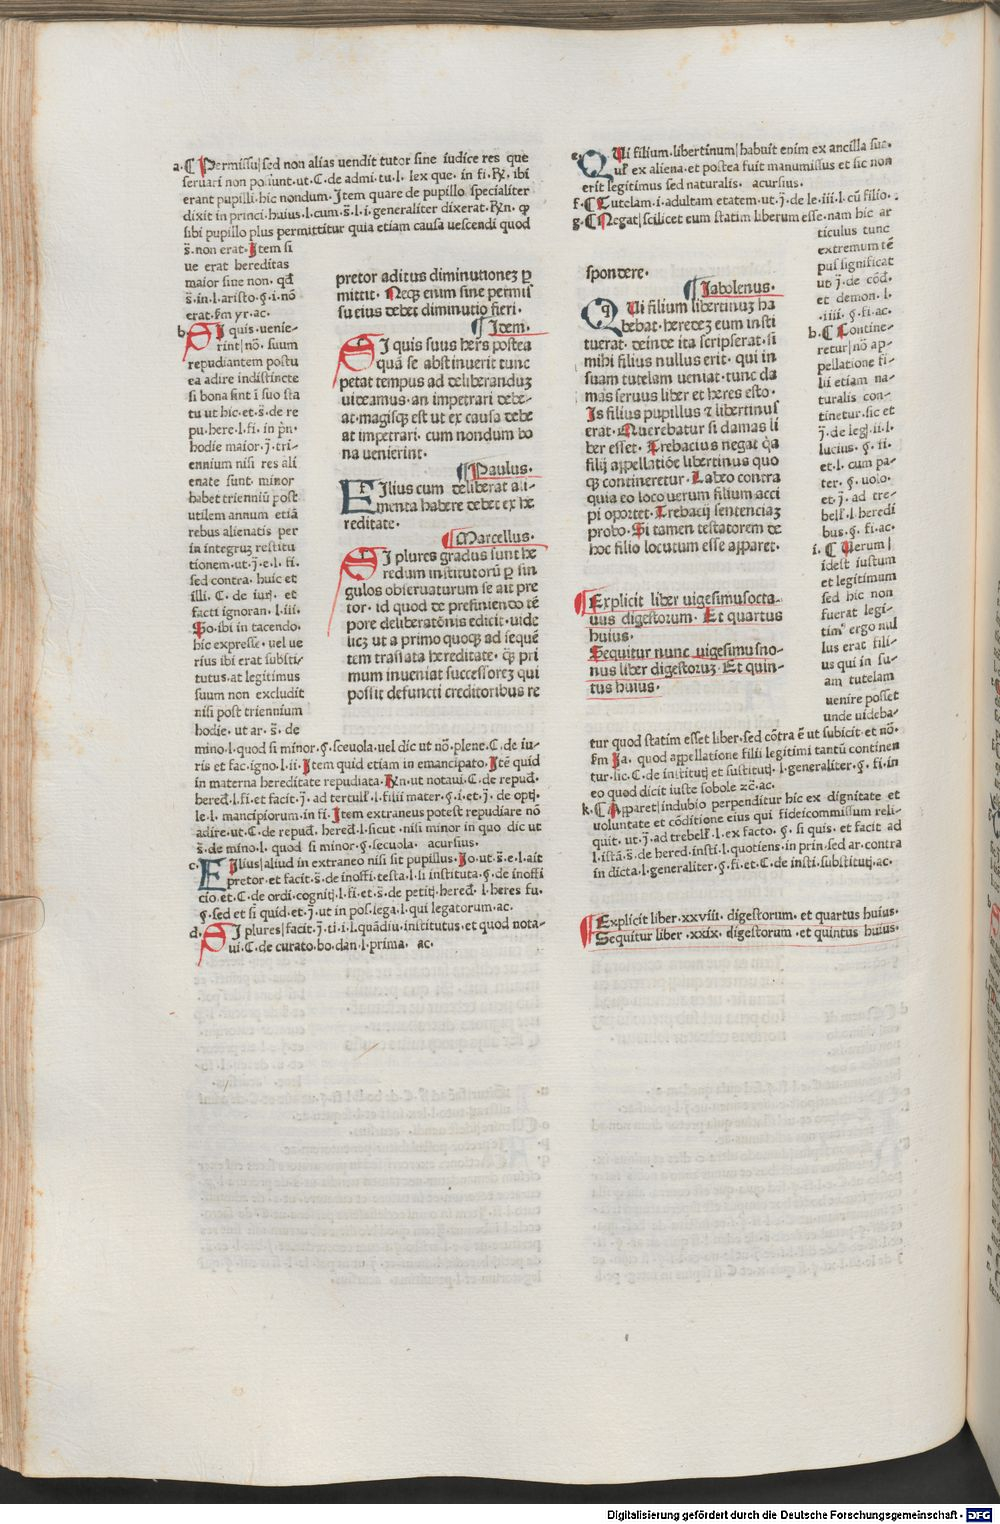 a. ¶ Permissu|sed non alias uendit tutor sine iudice res que
seruari non possunt.ut.C.de admi.tu.l. lex que. in fi. R̃. ibi
erant pupilli.hic nondum. Item quare de pupillo specialiter
dixit in princi.huius.l.cum.s̃.l.i.generaliter dixerat. R̃n. ꝙ
sibi pupillo plus permittitur quia etiam causa uescendi quod
s̃.non erat. Item si
ue erat hereditas
maior siue non. qd̃
s̃.in.l.aristo.§.i.nõ
erat.ẜm yr.ac.
b. SI quis.uenie-
rint|nõ. suum
repudiantem postu
ea adire indistincte
si bona sint ī suo sta
tu ut hic.et.s̃.de re
pu.here.l.fi. in pṙn.
hodie maior.j̃.tri-
ennium nisi res ali
enate sunt. minor
habet trienniũ post
utilem annum etiã
rebus alienatis per
in integruꝫ restitu
tionem.ut.j̃.e.l.fi.
sed contra. huic et
illi. C. de iurj. et
facti ignoran.l.iii.
So.ibi in tacendo.
hic expresse.uel ue
rius ibi erat substi/
tutus.at legitimus
suum non excludit
nisi post triennium
hodie.ut ar.s̃.de
mino.l.quod si minor.§.sceuola.uel dic ut nõ.plene.C.de iu-
ris et fac.igno.l.ii. Item quid etiam in emancipato. Itẽ quid
in materna hereditate repudiata. R̃n.ut notaui.C.de repud̃.
hered̃.l.fi.et facit.j̃.ad tertull̃.l.filii mater.§.i.et.j̃.de optj̃.
le.l. mancipiorum.in fi. Item extraneus potest repudiare nõ
adire.ut.C.de repud̃. hered̃.l.sicut .nisi minor in quo dic ut
s̃.de mino.l. quod si minor.§.secuola. acursius.
c. FIlius|aliud in extraneo nisi sit pupillus. So.ut.s̃.e.l.ait
pretor.et facit.s̃.de inoffi.testa.l.si instituta.§.de inoffi
cio.et.C.de ordi.cognitj.l.fi.et.s̃.de petitj.hered̃. l.heres fu.
§.sed et si quid.et.j̃.ut in pos.lega.l.qui legatorum.ac.
d. SI plures|facit.j̃.ti.i.l.quãdiu.institutus.et quod nota-
ui.C.de curato.bo.dan.l.prima. ac.
pretor aditus diminutioneꝫ ꝑ
mittit. Neqꝫ enim sine permis
su eius debet diminutio fieri.
¶ Idem.
SI quis suus heres postea
quã se abstinuerit tunc
petat tempus ad deliberanduꝫ
uideamus.an impetrari debe-
at.magisqꝫ est ut ex causa debe
at impetrari. cum nondum bo
na uenierint.
¶ Paulus.
FIlius cum deliberat ali-
menta habere debet ex he
reditate.
¶ Marcellus.
SI plures gradus sunt he
redum institutorũ ꝑ sin
gulos obseruaturum se ait pre
tor. id quod de prefiniendo tẽ
pore deliberatõnis edicit.uide
licꝫ ut a primo quoqꝫ ad sequẽ
tem traslata hereditate. qꝫ pri
mum inueniat successoreꝫ qui
possit defuncti creditoribus re
e. QUi filium.libertinum|habuit enim ex ancilla sua.
ul̃ ex aliena.et postea fuit manumissus et sic non
erit legitimus sed naturalis. acursius.
f. ¶ Tutelam.i.adultam etatem.ut.j̃.de le.iii.l.cũ filio.
g. ¶ Negat|scilicet eum statim liberum esse.nam hic ar
ticulus tunc
extremum tẽ
pus significat
ut j̃.de cõd̃.
et demon.l.
.iiii. §.fi.ac.
spondere.
¶ Iabolenus.
QUi filium libertinuꝫ ha
bebat.heredeꝫ eum insti
tuerat.deinde ita scripserat.si
mihi filius nullus erit. qui in
suam tutelam ueniat.tunc da
mas seruus liber et heres esto.
Is filius pupillus ⁊ libertinus
erat. Querebatur si damas li
ber esset. Trebacius negat q̃a
filij appellatiõe libertinus quo
qꝫ contineretur. Labeo contra
quia eo loco uerum filium acci
pi oportet. Trebacij sentenciaꝫ
probo. Si tamen testatorem de
hoc filio locutum esse apparet.
¶ Explicit liber uigesimusocta-
uus digestorum. Et quartus
huius.
Sequitur nunc uigesimusno-
nus liber digestoruꝫ. Et quin-
tus huius.
h. ¶ Contine-
retur|nõ ap-
pellatione fi-
lii etiam na-
turalis con-
tinetur.sic et
j̃.de legj.ii.l.
lucius. §. ii.
et.l. cum pa-
ter. §. uolo.
et.j̃. ad tre-
bell̃.l.heredi
bus.§.fi.ac.
i. ¶ Verum|
idest iustum
et legitimum
sed hic non
fuerat legi-
tim⁹ ergo nul
lus erat fili-
us qui in su-
am tutelam
uenire posset
unde uideba-
tur quod statim esset liber.sed cõtra ẽ ut subicit et nõ.
ẜm Ia. quod appellatione filii legitimi tantũ continen
tur.sic.C.de institutj et sustitutj.l.generaliter.§.fi.in
eo quod dicit iuste sobole ⁊c̃.ac.
k. ¶ Apparet|indubio perpenditur hic ex dignitate et
uoluntate et cõditione eius qui fideicommissum reli-
quit. ut.j̃.ad trebell̃.l.ex facto.§. si quis. et facit ad
l.istã.s̃.de hered.insti.l.quotiens.in prin.sed ar.contra
in dicta.l.generaliter.§.fi.et.C.de insti.substitutj.ac.
¶ Explicit liber.xxviii. digestorum. et quartus huius.
Sequitur liber.xxix.digestorum.et quintus huius.
Digitalisierung gefördert durch die Deutsche Forschungsgemeinschaft - DFG